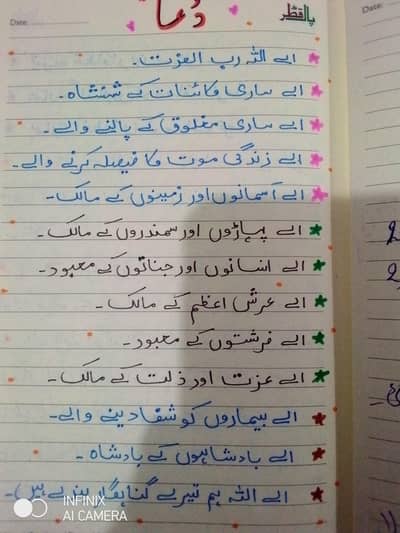 دُعا
Date:
اے اللہ رب العزت۔
اے ساری کائنات کے شہنشاہ۔
اے ساری مخلوق کے پالنے والے۔
اے زندگی موت کا فیصلہ کرنے والے۔
اے آسمانوں اور زمینوں کے مالک۔
اے پہاڑوں اور سمندروں کے مالک۔
اے انسانوں اور جناتوں کے معبود۔
اے عرش اعظم کے مالک۔
اے فرشتوں کے معبود۔
اے عزت اور ذلت کے مالک۔
اے بیماروں کو شفا دینے والے۔
اے بادشاہوں کے بادشاہ۔
اے اللہ ہم تیرے گناہگار بندے ہیں۔
Date:
INFINIX
AI CAMERA